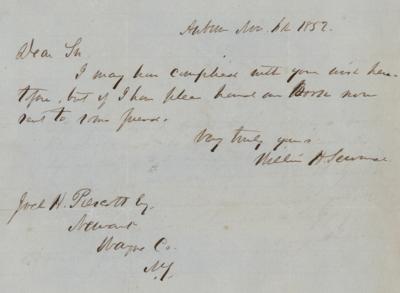 Auburn Nov. 6th 1852.
Dear Sir.
I may have complied with your wish here-
tofore, but if I have please hand the Book now
sent to some friend.
Very truly yours
William H Seward
Joel H. Prescott Esq.
Newark
Wayne Co.
N.Y.